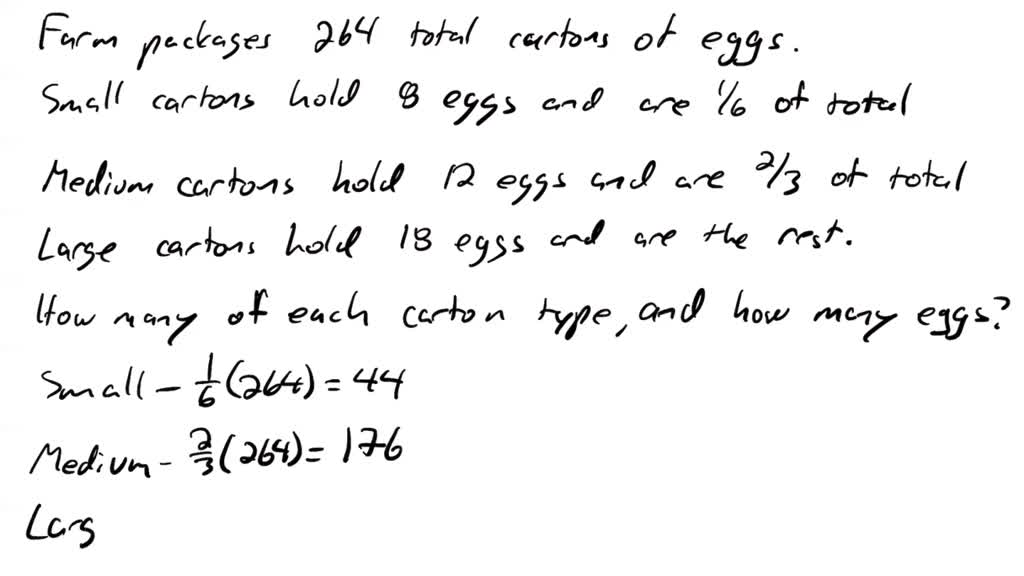 Farm packages 264 total cartons of eggs.
Small cartons hold 8 eggs and are 1/6 of total
Medium cartons hold 12 eggs and are 2/3 of total
Large cartons hold 18 eggs and are the rest.
How many of each carton type, and how many eggs?
Small - 1/6 (264) = 44
Medium - 2/3 (264) = 176
Larg